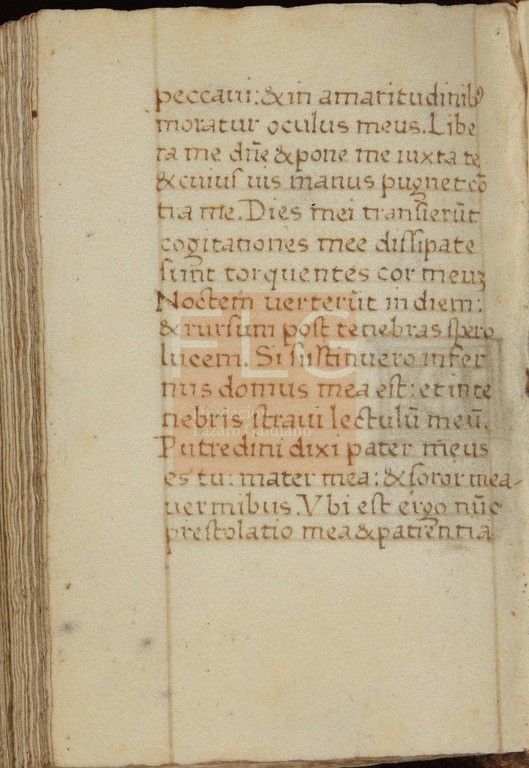 peccaui: & in amaritudinibꝰ
moratur oculus meus. Libe
ra me dñe & pone me iuxta te
& cuius uis manus pugnet cō
tra me. Dies mei transierūt
cogitationes mee dissipate
sunt torquentes cor meuꝫ
Noctem uerterūt in diem:
& rursum post tenebras spero
lucem. Si sustinuero infer
nus domus mea est: et in te
nebris straui lectulū meū.
Putredini dixi pater meus
es tu: mater mea: & soror mea
uermibus. Vbi est ergo nūc
prestolatio mea & patientia
FLG
Lázaro Galdiano